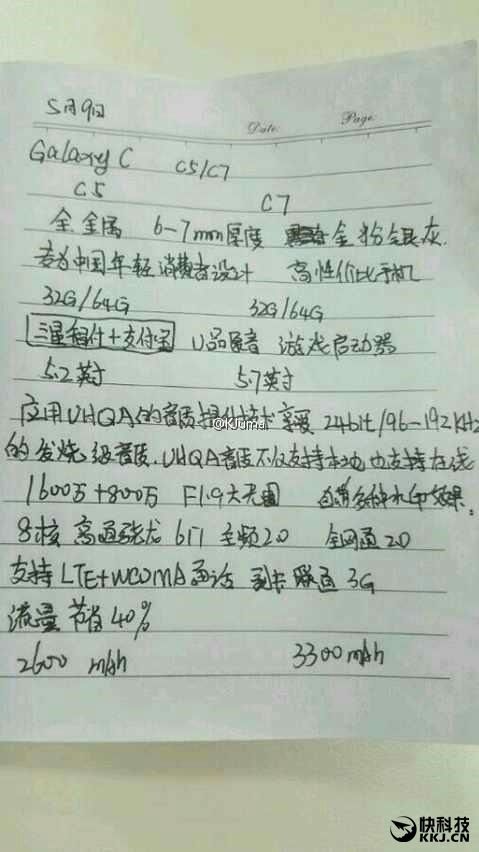 5月9日
Date. Page.
Galaxy C C5/C7
C5 C7
全金属 6-7mm厚度 金粉银灰.
专为中国年轻消费者设计 高性价比手机
32G/64G 32G/64G
三星智付+支付宝 U品 音 游戏启动器
5.2英寸 5.7英寸
@KJuma
应用UHQA的音质提升技术 享受 24bit/96-192KHz
的发烧级音质. UHQA音质不仅支持本地也支持在线
1600万+800万 F1.9大光圈 自带多种水印效果.
8核 高通骁龙 617 主频2.0 全网通2.0
支持LTE+WCDMA通话 副卡联通3G
流量节省40%
2600 mAh 3300mAh
快科技
KKJ.CN